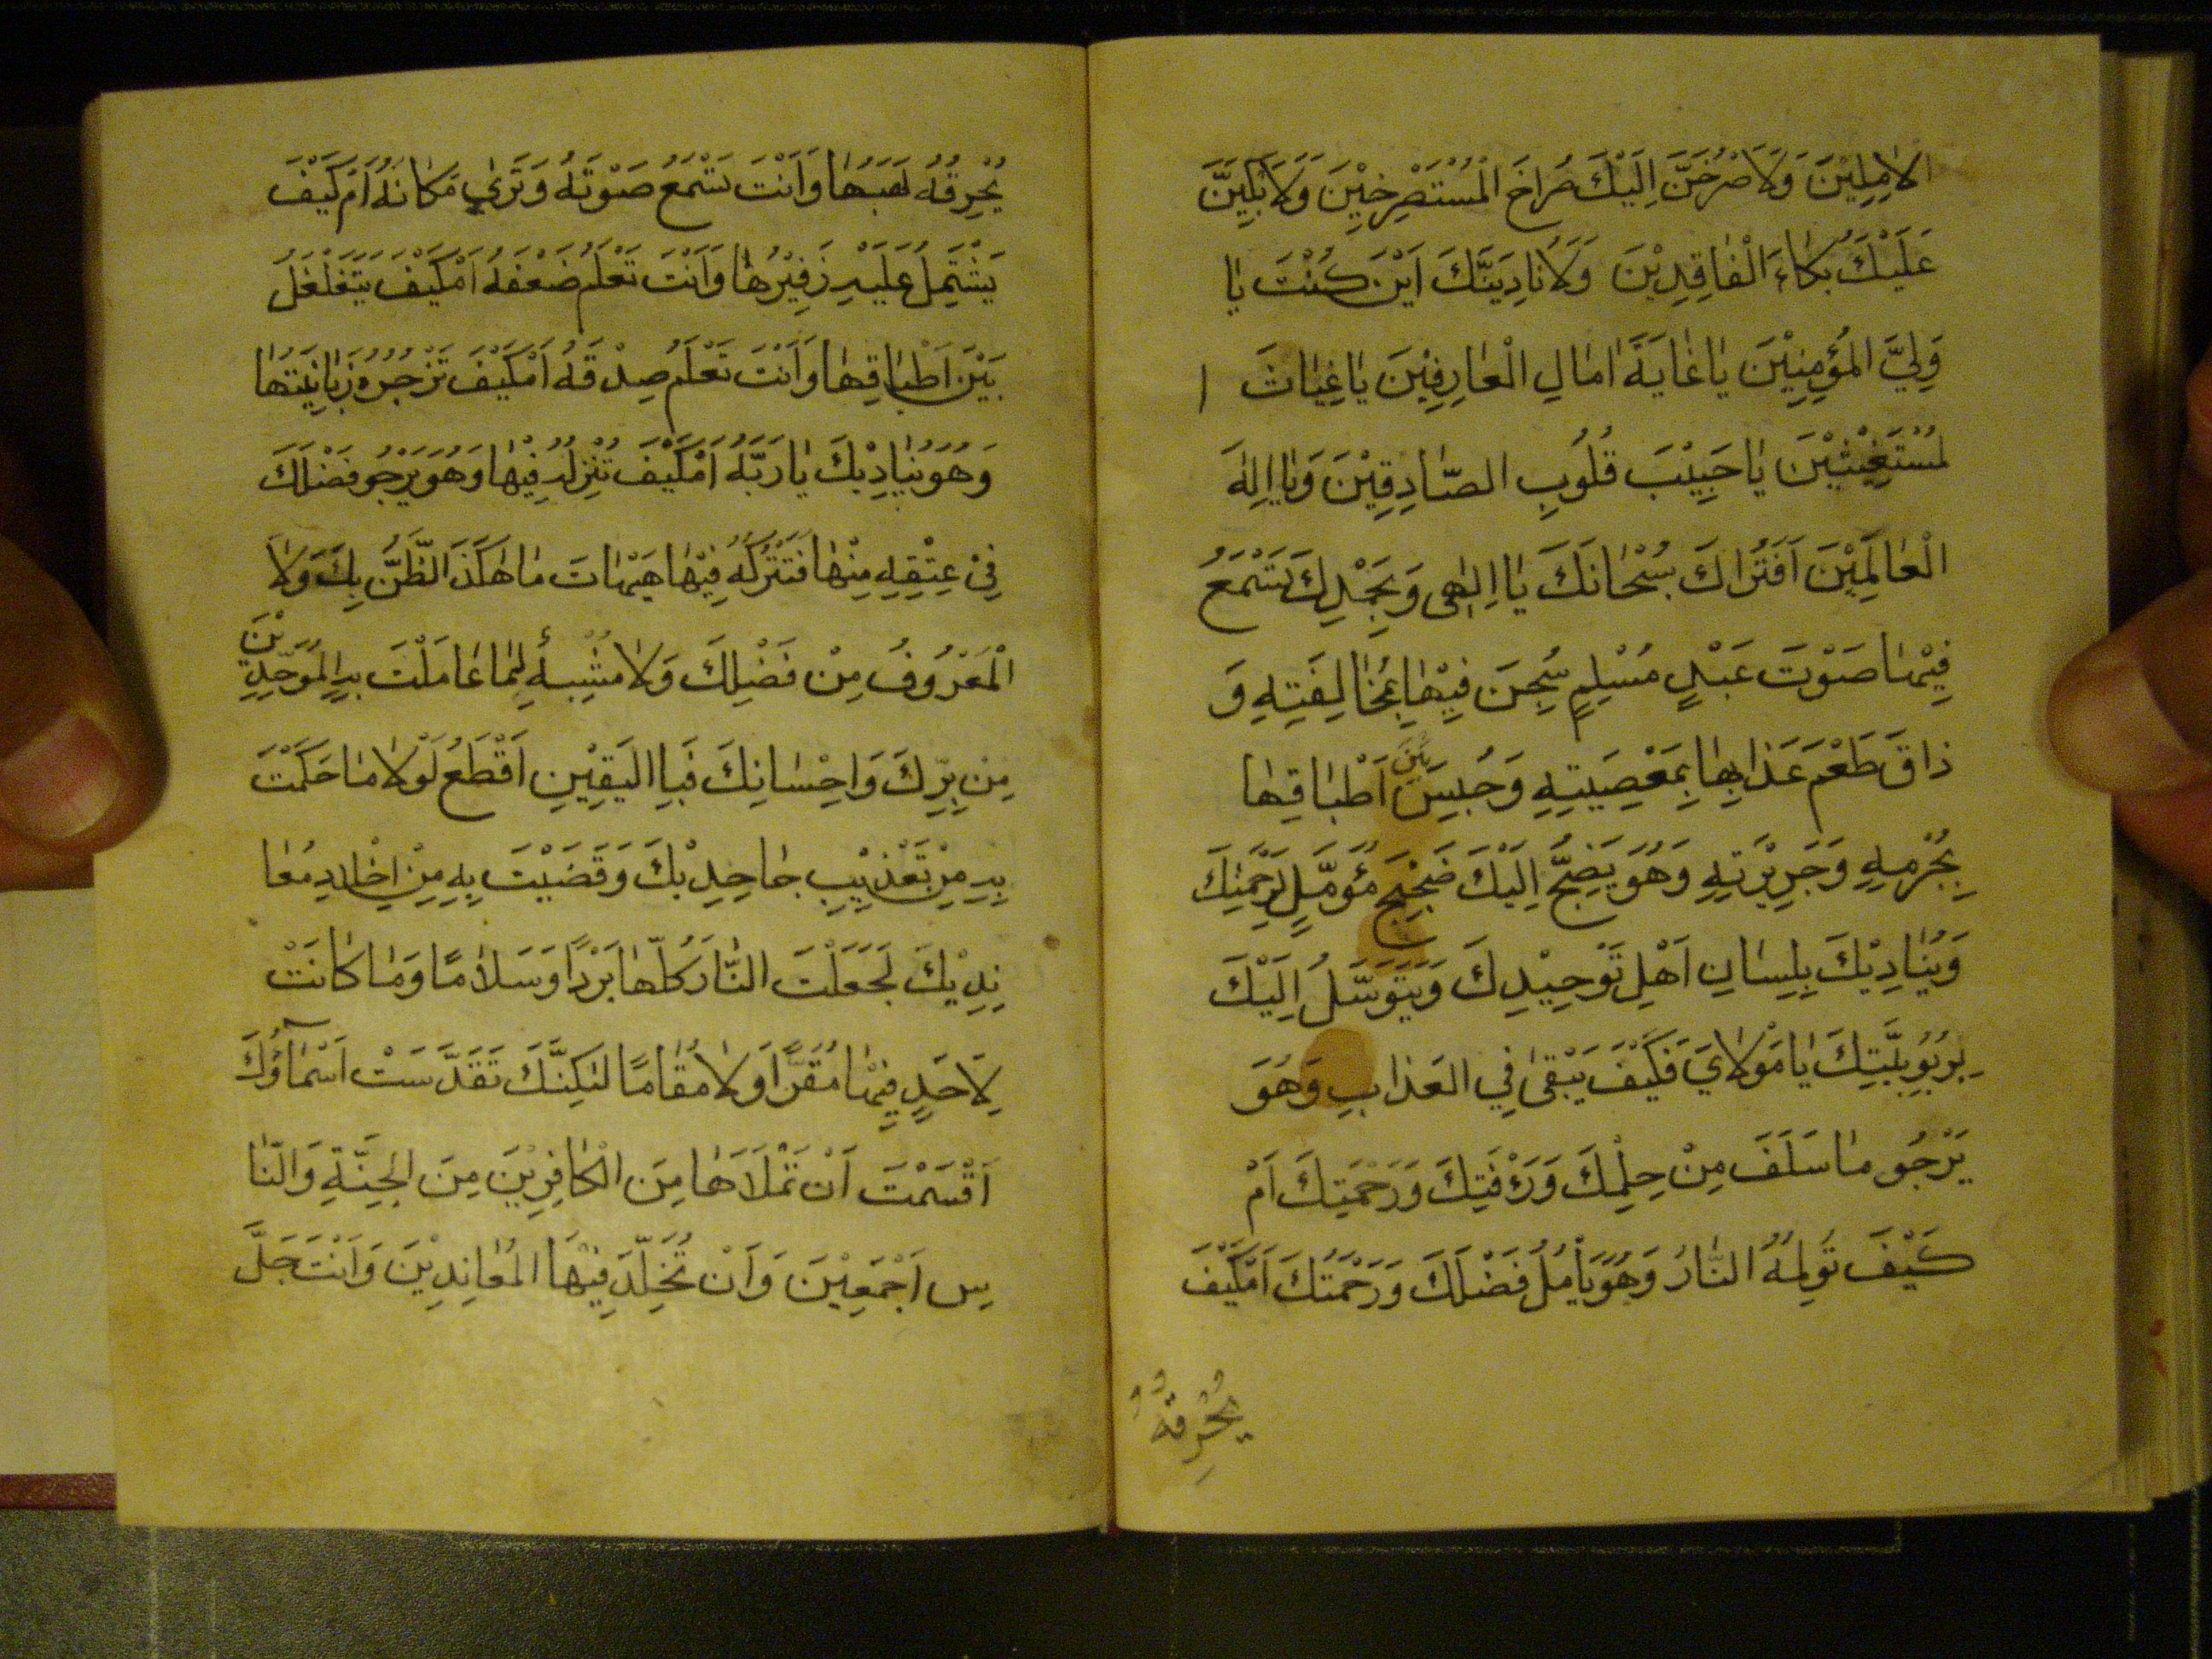 الْاٰمِلِيْنَ وَلَاَصْرُخَنَّ اِلَيْكَ صُرَاخَ الْمُسْتَصْرِخِيْنَ وَلَاَبْكِيَنَّ
عَلَيْكَ بُكَاءَ الْفَاقِدِيْنَ وَلَاُنَادِيَنَّكَ اَيْنَ كُنْتَ يَا
وَلِيَّ الْمُؤْمِنِيْنَ يَا غَايَةَ اٰمَالِ الْعَارِفِيْنَ يَا غِيَاثَ ا
لْمُسْتَغِيْثِيْنَ يَا حَبِيْبَ قُلُوبِ الصَّادِقِيْنَ وَيَا اِلٰهَ
الْعَالَمِيْنَ اَفَتُرَاكَ سُبْحَانَكَ يَا اِلٰهِى وَبِحَمْدِكَ تَسْمَعُ
فِيْهَا صَوْتَ عَبْدٍ مُسْلِمٍ سُجِنَ فِيْهَا بِمُخَالَفَتِهِ وَ
ذَاقَ طَعْمَ عَذَابِهَا بِمَعْصِيَتِهِ وَحُبِسَ بَيْنَ اَطْبَاقِهَا
بِجُرْمِهِ وَجَرِيْرَتِهِ وَهُوَ يَضِجُّ اِلَيْكَ ضَجِيْجَ مُؤَمِّلٍ لِرَحْمَتِكَ
وَيُنَادِيْكَ بِلِسَانِ اَهْلِ تَوْحِيْدِكَ وَيَتَوَسَّلُ اِلَيْكَ
بِرُبُوبِيَّتِكَ يَا مَوْلَايَ فَكَيْفَ يَبْقىٰ فِي العَذَابِ وَهُوَ
يَرْجُو مَا سَلَفَ مِنْ حِلْمِكَ وَرَأْفَتِكَ وَرَحْمَتِكَ اَمْ
كَيْفَ تُولِمُهُ النَّارُ وَهُوَ يَاْمُلُ فَضْلَكَ وَرَحْمَتَكَ اَمْ كَيْفَ
يُحْرِقُهُ
يُحْرِقُهُ لَهَبُهَا وَاَنْتَ تَسْمَعُ صَوْتَهُ وَتَرٰى مَكَانَهُ اَمْ كَيْفَ
يَشْتَمِلُ عَلَيْهِ زَفِيْرُهَا وَاَنْتَ تَعْلَمُ ضَعْفَهُ اَمْ كَيْفَ يَتَغَلْغَلُ
بَيْنَ اَطْبَاقِهَا وَاَنْتَ تَعْلَمُ صِدْقَهُ اَمْ كَيْفَ تَزْجُرُهُ زَبَانِيَتُهَا
وَهُوَ يُنَادِيْكَ يَا رَبَّهُ اَمْ كَيْفَ تُنْزِلُهُ فِيْهَا وَهُوَ يَرْجُو فَضْلَكَ
فِيْ عِتْقِهِ مِنْهَا فَتَتْرُكُهُ فِيْهَا هَيْهَاتَ مَا هٰكَذَا الظَّنُّ بِكَ وَلَا
الْمَعْرُوفُ مِنْ فَضْلِكَ وَلَا مُشْبِهٌ لِمَا عَامَلْتَ بِهِ الْمُوَحِّدِيْنَ
مِنْ بِرِّكَ وَاِحْسَانِكَ فَبِاالْيَقِيْنِ اَقْطَعُ لَوْلَا مَا حَكَمْتَ
بِهِ مِنْ تَعْذِيْبِ جَاحِدِيْكَ وَقَضَيْتَ بِهِ مِنْ اِخْلَادِ مُعَا
نِدِيْكَ لَجَعَلْتَ النَّارَ كُلَّهَا بَرْدًا وَسَلَامًا وَمَا كَانَتْ
لِاَحَدٍ فِيْهَا مُقَرًّا وَلَا مُقَامًا لٰكِنَّكَ تَقَدَّسَتْ اَسْمَآؤُكَ
اَقْسَمْتَ اَنْ تَمْلَاَهَا مِنَ الْكَافِرِيْنَ مِنَ الْجِنَّةِ وَالنَّا
سِ اَجْمَعِيْنَ وَاَنْ تُخَلِّدَ فِيْهَا الْمُعَانِدِيْنَ وَاَنْتَ جَلَّ